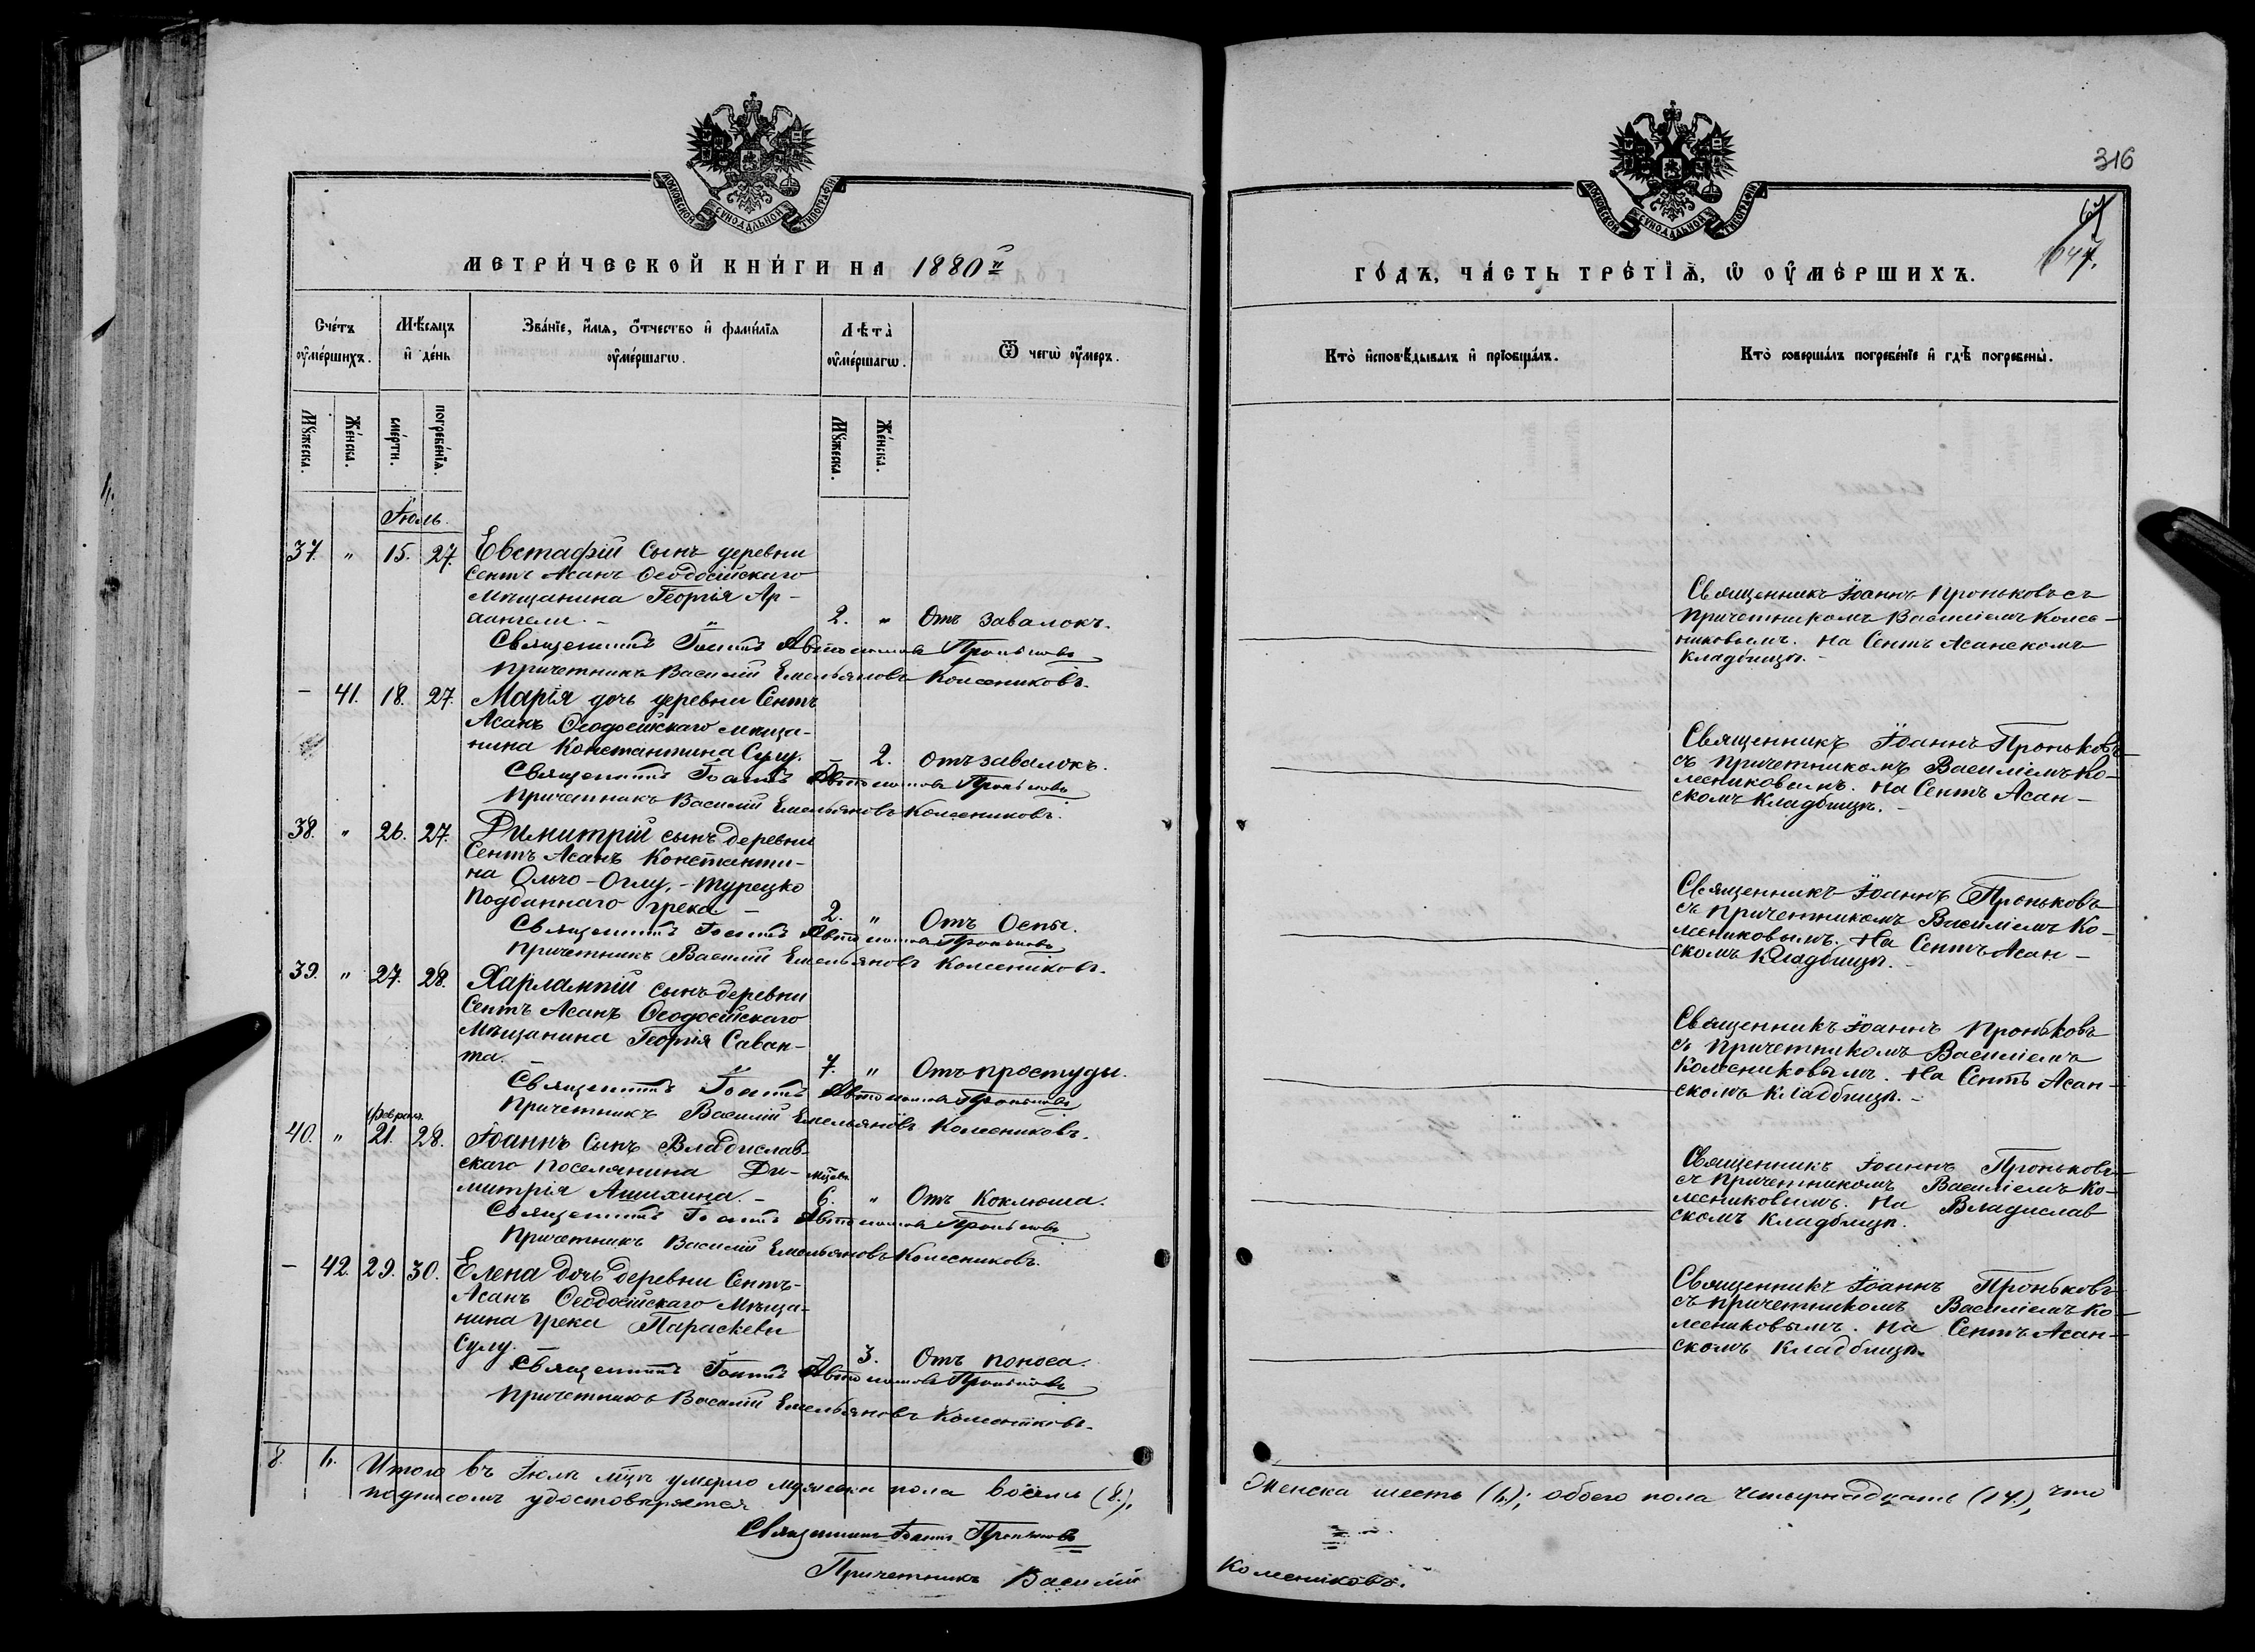 316
67
647.
МОСКОВСКОЙ СѴНОДАЛЬНОЙ ТИПОГРАФІИ
МОСКОВСКОЙ СѴНОДАЛЬНОЙ ТИПОГРАФІИ
МЕТРИ́ЧЕСКОЙ КНИ́ГИ НА 1880й
ГО́ДЪ, ЧА́СТЬ ТРЕ́ТІѦ, Ѡ ОУ҆МЕ́РШИХЪ.
Сче́тъ оу҆ме́ршихъ.
Мѣ́сѧцъ и҆ де́нь
Зва́нїе, и҆́мѧ, ѻ҆́тчество и҆ фами́лїѧ оу҆ме́ршагѡ.
Лѣта̀ оу҆ме́ршагѡ.
Ѿ чегѡ̀ оу҆́меръ.
Кто̀ и҆сповѣ́дывалъ и҆ прїобща́лъ.
Кто̀ соверша́лъ погребе́нїе и҆ гдѣ̀ погребены̀.
Мꙋ́жеска.
Же́нска.
сме́рти.
погребе́нїѧ.
Мꙋ́жеска.
Же́нска.
Іюль.
37. " 15. 27. Евстафій сынъ деревни
Сентъ Асанъ Ѳеодосійскаго
Мѣщанина Георгія Ар-
даангели. - 2. " Отъ завалокъ.
Священникъ Іоаннъ Автономовъ Проньковъ
Причетникъ Василій Емельяновъ Колесниковъ.
Священникъ Іоаннъ Проньковъ съ
причетникомъ Василіемъ Колес-
никовымъ. На Сентъ Асанскомъ
кладбищѣ. -
- 41. 18. 27. Марія дочь деревни Сентъ
Асанъ Ѳеодосійскаго мѣща-
нина Константина Сулу. - 2. отъ завалокъ.
Священникъ Іоаннъ Автономовъ Проньковъ
Причетникъ Василій Емельяновъ Колесниковъ.
Священникъ Іоаннъ Проньковъ
съ причетникомъ Василіемъ Ко-
лесниковымъ. На Сентъ Асан-
скомъ кладбищѣ. -
38. " 26. 27. Димитрій сынъ деревни
Сентъ Асанъ Константи-
на Ольчо-Оглу, - турецко
подданнаго грека - 2. " Отъ Оспы.
Священникъ Іоаннъ Автономовъ Проньковъ
Причетникъ Василій Емельяновъ Колесниковъ.
Священникъ Іоаннъ Проньковъ
съ причетникомъ Василіемъ Ко-
лесниковымъ. На Сентъ Асан-
скомъ кладбищѣ. -
39. " 27. 28. Харлампій сынъ деревни
Сентъ Асанъ Ѳеодосійскаго
Мѣщанина Георгія Саван-
та. - 7. " Отъ простуды.
Священникъ Іоаннъ Автономовъ Проньковъ
Причетникъ Василій Емельяновъ Колесниковъ.
Священникъ Іоаннъ Проньковъ
съ причетникомъ Василіемъ
Колесниковымъ. На Сентъ Асан-
скомъ кладбищѣ. -
февраля.
40. " 21. 28. Іоаннъ сынъ Владислав-
скаго поселянина Ди- мѣсяц.
митрія Ашихина. - 6. " Отъ Коклюша.
Священникъ Іоаннъ Автономовъ Проньковъ
Причетникъ Василій Емельяновъ Колесниковъ.
Священникъ Іоаннъ Проньковъ
съ причетникомъ Василіемъ Ко-
лесниковымъ. На Владислав
скомъ кладбищѣ.
- 42. 29. 30. Елена дочь деревни Сентъ-
Асанъ Ѳеодосійскаго Мѣща-
нина грека Параскевы
Сулу. - 3. Отъ поноса.
Священникъ Іоаннъ Автономовъ Проньковъ
Причетникъ Василій Емельяновъ Колесниковъ.
Священникъ Іоаннъ Проньковъ
съ причетникомъ Василіемъ Ко-
лесниковымъ. На Сентъ Асан-
скомъ кладбищѣ.
8. 6. Итого въ Іюлѣ мцѣ умерло мужеска пола восемь (8.), женска шесть (6.); обоего пола четырнадцать (14.), что
подписомъ удостовѣряется
Священникъ Іоаннъ Проньковъ
Причетникъ Василій Колесниковъ.